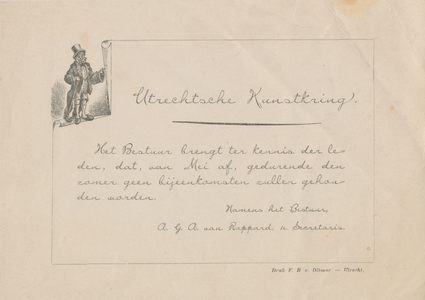 Utrechtsche Kunstkring.
Het Bestuur brengt ter kennis der le-
den, dat, van Mei af, gedurende den
zomer geen bijeenkomsten zullen gehou-
den worden.
Namens het Bestuur,
A. G. A. van Rappard, Secretaris.
Druk F. B. v. Ditmar — Utrecht.